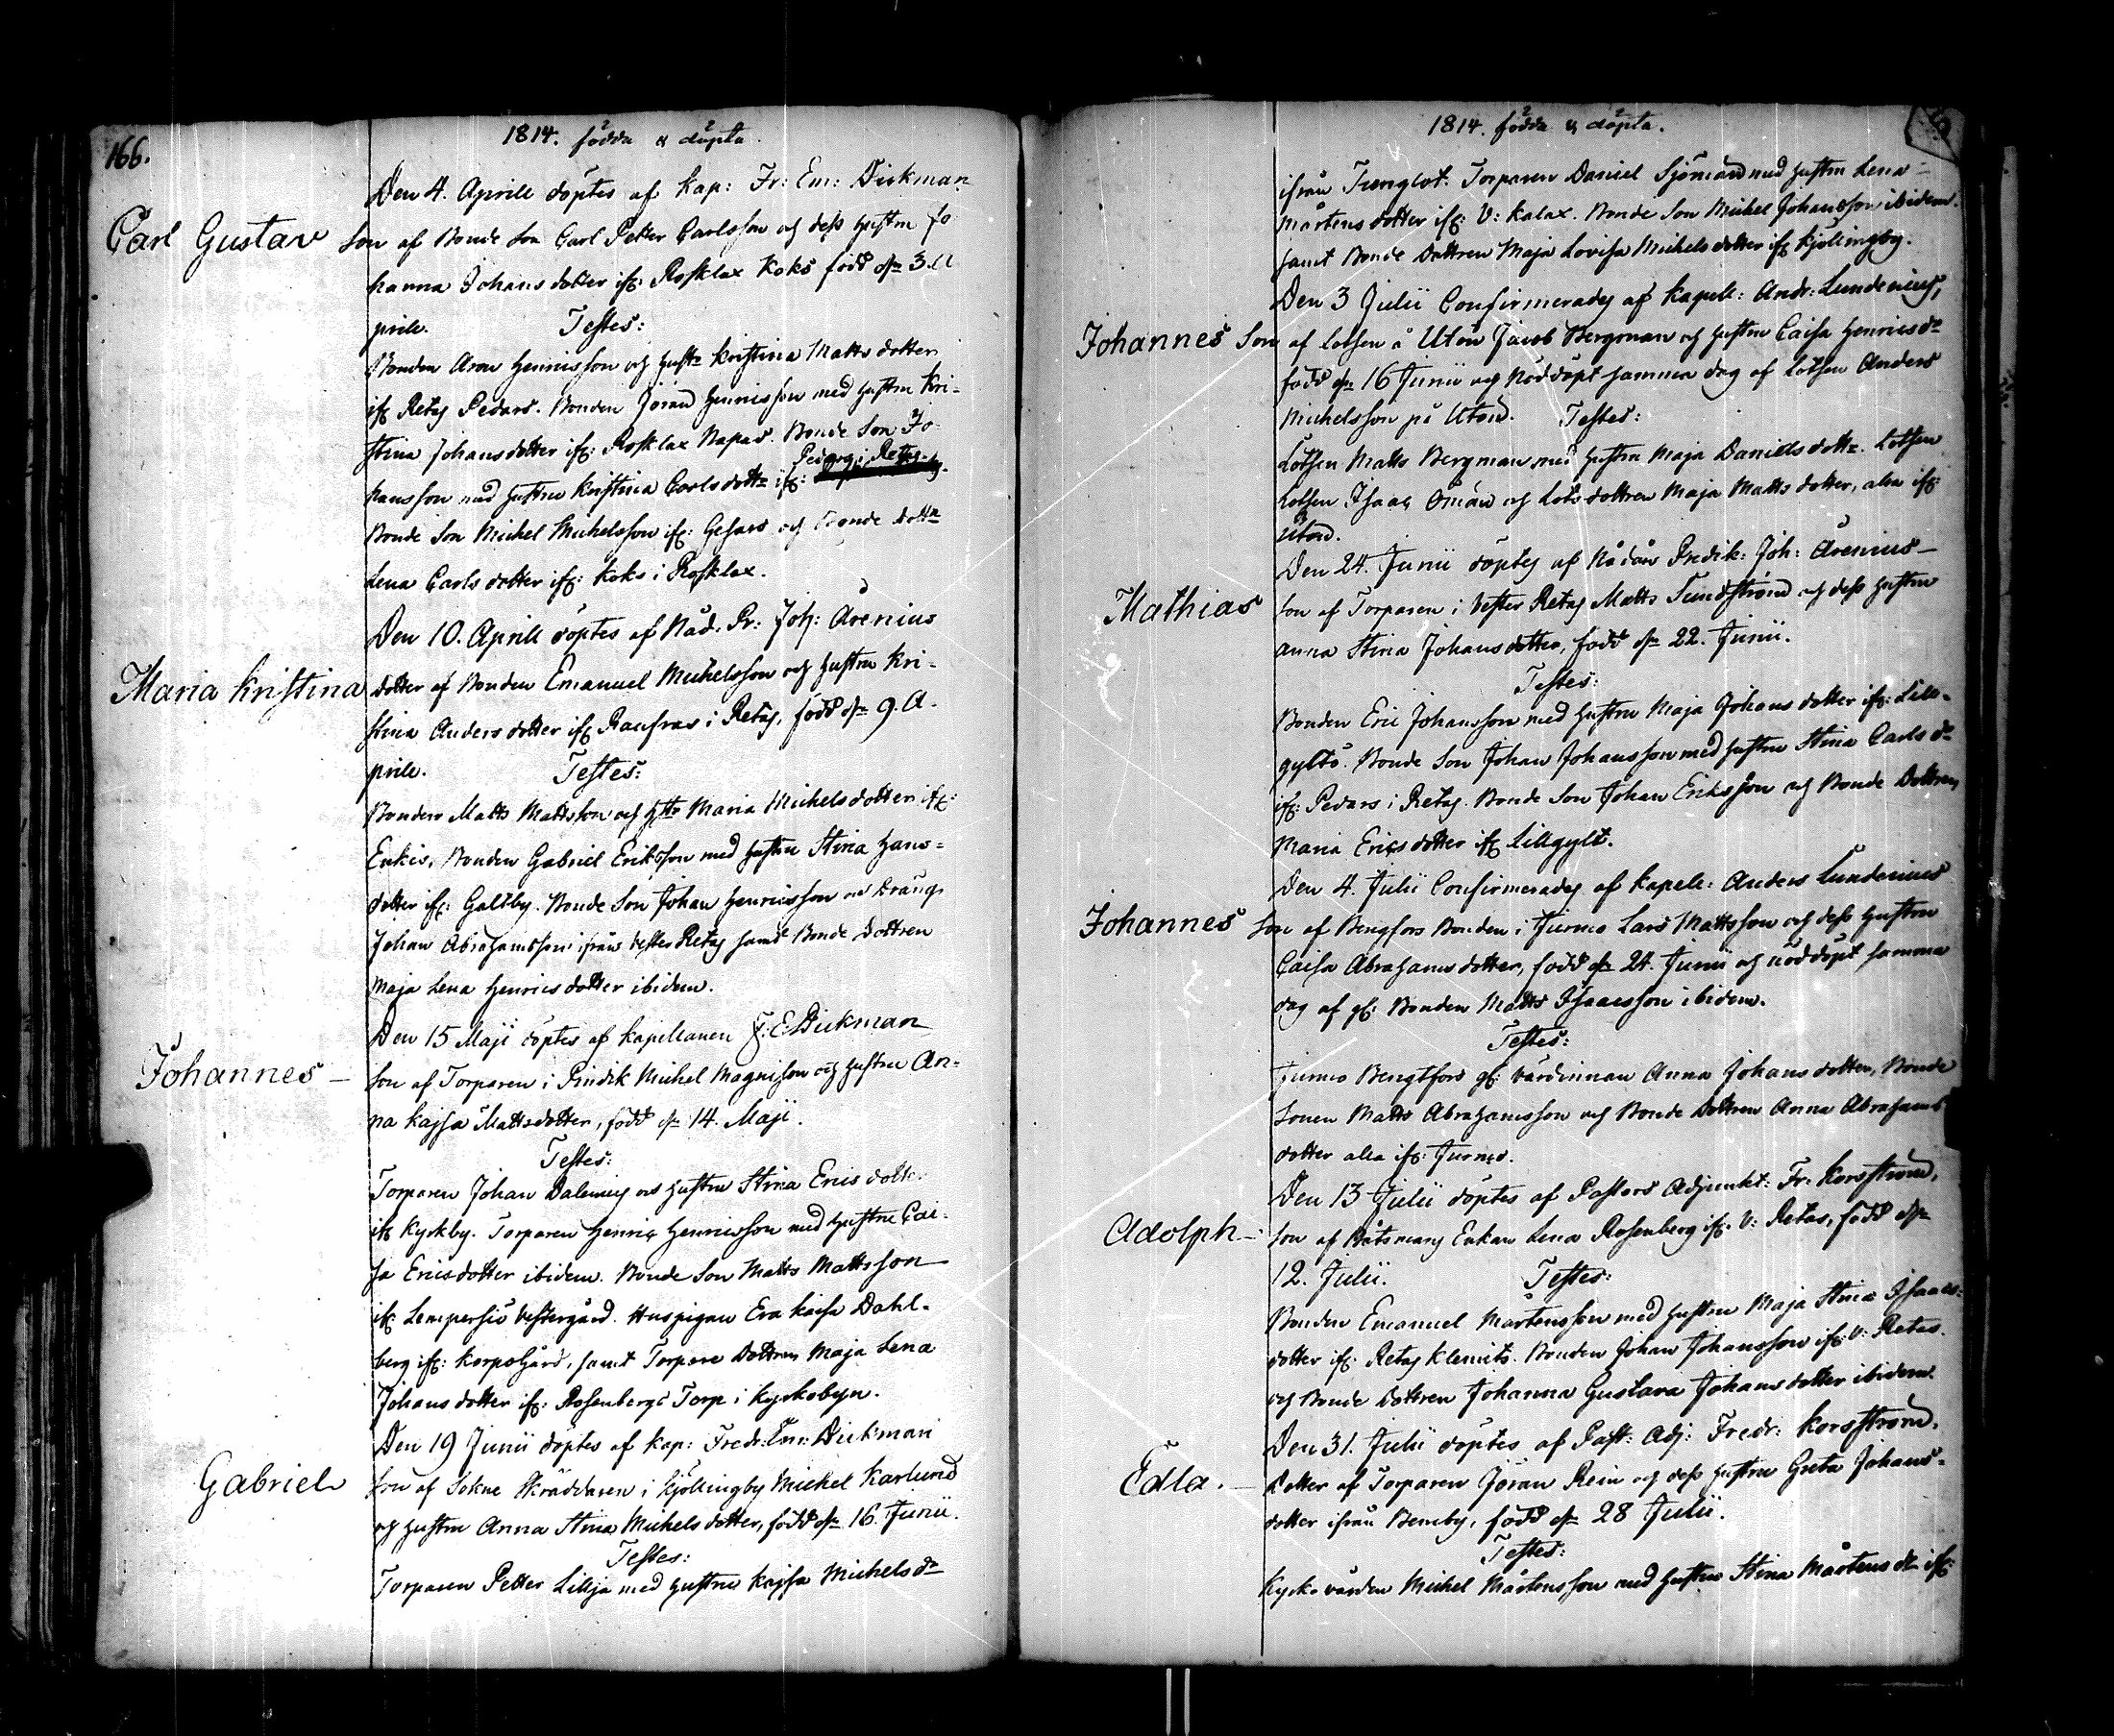 166.
1814. födda & döpta
Den 4. Aprill döptes af Kap: Fr: Em: Dickman
Carl Gustav Son af Bonde Son Carl Petter Carlsson och dess hustru Jo
hanna Johans dotter ifr: Rosklax Koks född dn 3. A
prile. Testes:
Bonden Aron Henricsson och hustr Kristina Matts dotter
ifr Retas Pedars. Bonden Jöran Henricsson med hustru Kri-
stina Johansdotter ifr: Rosklax Napas. Bonde Son Jo
Pedars i Retas.
hansson med hustru Kristina Carls dottr ifr:
Bonde Son Michel Michelsson ifr: Gesars och Bonde dottr
Lena Carls dotter ifr: Koks i Rosklax.
Den 10. Aprill döptes af Nåd. Pr: Joh: Arenius
Maria Kristina dotter af Bonden Emanuel Michelsson och hustru Kri-
stina Anders dotter ifr Ranfras i Retas, född dn 9. A-
prile. Testes:
Bonden Matts Mattsson och Hstr Maria Michelsdotter ifr:
Enkis, Bonden Gabriel Eriksson med hustru Stina Hans=
dotter ifr: Galtby. Bonde Son Johan Henricsson och Dräng
Johan Abrahamsson ifrån Vester Retas samt Bonde Dottren
Maja Lena Henricsdotter ibidem.
Den 15 Maji döptes af kapellanen F: E Dickman
Johannes – Son af Torparen i Pindik Michel Magnisson och hustru An-
na Kajsa Mattsdotter, född dn 14. Maji.
Testes:
Torparen Johan Dalenius och hustru Stina Erics dott
ifr Kyrkby. Torparen Henric Henricsson med hustru Cai-
sa Ericsdotter ibidem. Bonde Son Matts Mattsson
ifr: Lempersiö Vestergård. Huspigan Eva Kaisa Dahl-
berg ifr: Korpogård, samt Torpare Dottren Maja Lena
Johans dotter ifr: Rosenbergs Torp i Kyrkobyn.
Den 19 Junii döptes af Kap: Fredr: Em: Dickman
Gabriel Son af Sokne Skräddaren i Kjöllingby Michel Karlund
och hustru Anna Stina Michels dotter, född dn 16. Junii.
Testes:
Torparen Petter Lillja med hustru Kajsa Michels dr
1814. födda & döpta.
ifrån Trenglot. Torparen Daniel Sjöman med hustru Lena –
Mårtens dotter ifr: V: Kalax. Bonde Son Michel Johansson ibidem.
samt Bonde Dottren Maja Lovisa Michels dotter ifr Kjölingby.
Den 3 Julii Confirmerades af Kapell: Andr: Lundenius,
Johannes Son af lotsen å Utön Jacob Bergman och hustru Caisa Henricsdr
född dn 16 Junii och Nöddöpt samma dag af Lotsen Anders
Michelsson på Utön. Testes:
Lotsen Matts Bergman med hustru Maja Daniels dottr. Lotsen
Lotsen Isaac Öman och Lots dottren Maja Matts dotter, alla ifr:
Utön.
Den 24. Junii döptes af Nådårs Predik: Joh: Arenius –
Mathias Son af Torparen i Vester Retas Matts Sundström och dess hustru
Anna Stina Johans dotter, född dn 22. Junii.
Testes:
Bonden Eric Johansson med hustru Maja Johans dotter ifr: Lill-
gyltö. Bonde Son Johan Johansson med hustru Stina Carls dr
ifr: Pedars i Retas. Bonde Son Johan Eriksson och Bonde Dottren
Maria Erics dotter ifr Lillgylt.
Den 4. Julii Confirmerades af Kapell: Anders Lundenius
Johannes Son af Bengtfors Bonden i Jurmo Lars Mattsson och dess hustru
Caisa Abrahams dotter, född dn 24. Junii och nöddöpt samma
dag af gl: Bonden Matts Isaacsson ibidem.
Testes:
Jurmo Bengtfors gl: Värdinnan Anna Johans dotter, Bonde
Sonen Matts Abrahamsson och Bonde Dottren Anna Abrahams
dotter alla ifr: Jurmo.
Den 13 Julii döptes af Pastors Adjunkt: Fr: Korsström,
Adolph – Son af Båtsmans Enkan Lena Rosenberg ifr. V: Retas, född dn
12. Julii. Testes:
Bonden Emanuel Mårtensson med hustru Maja Stina Isaacs=
dotter ifr: Retas Klemits. Bonden Johan Johansson ifr: V: Retas.
och Bonde Dottren Johanna Gustava Johans dotter ibidem.
Den 31. Julii döptes af Past: Adj: Fredr: Korsström.
Edla. – Dotter af Torparen Jöran Rein och dess hustru Greta Johans=
dotter ifrån Bemby, född dn 28 Julii.
Testes:
Kyrko värden Michel Mårtensson med hustru Stina Mårtens dr ifr: